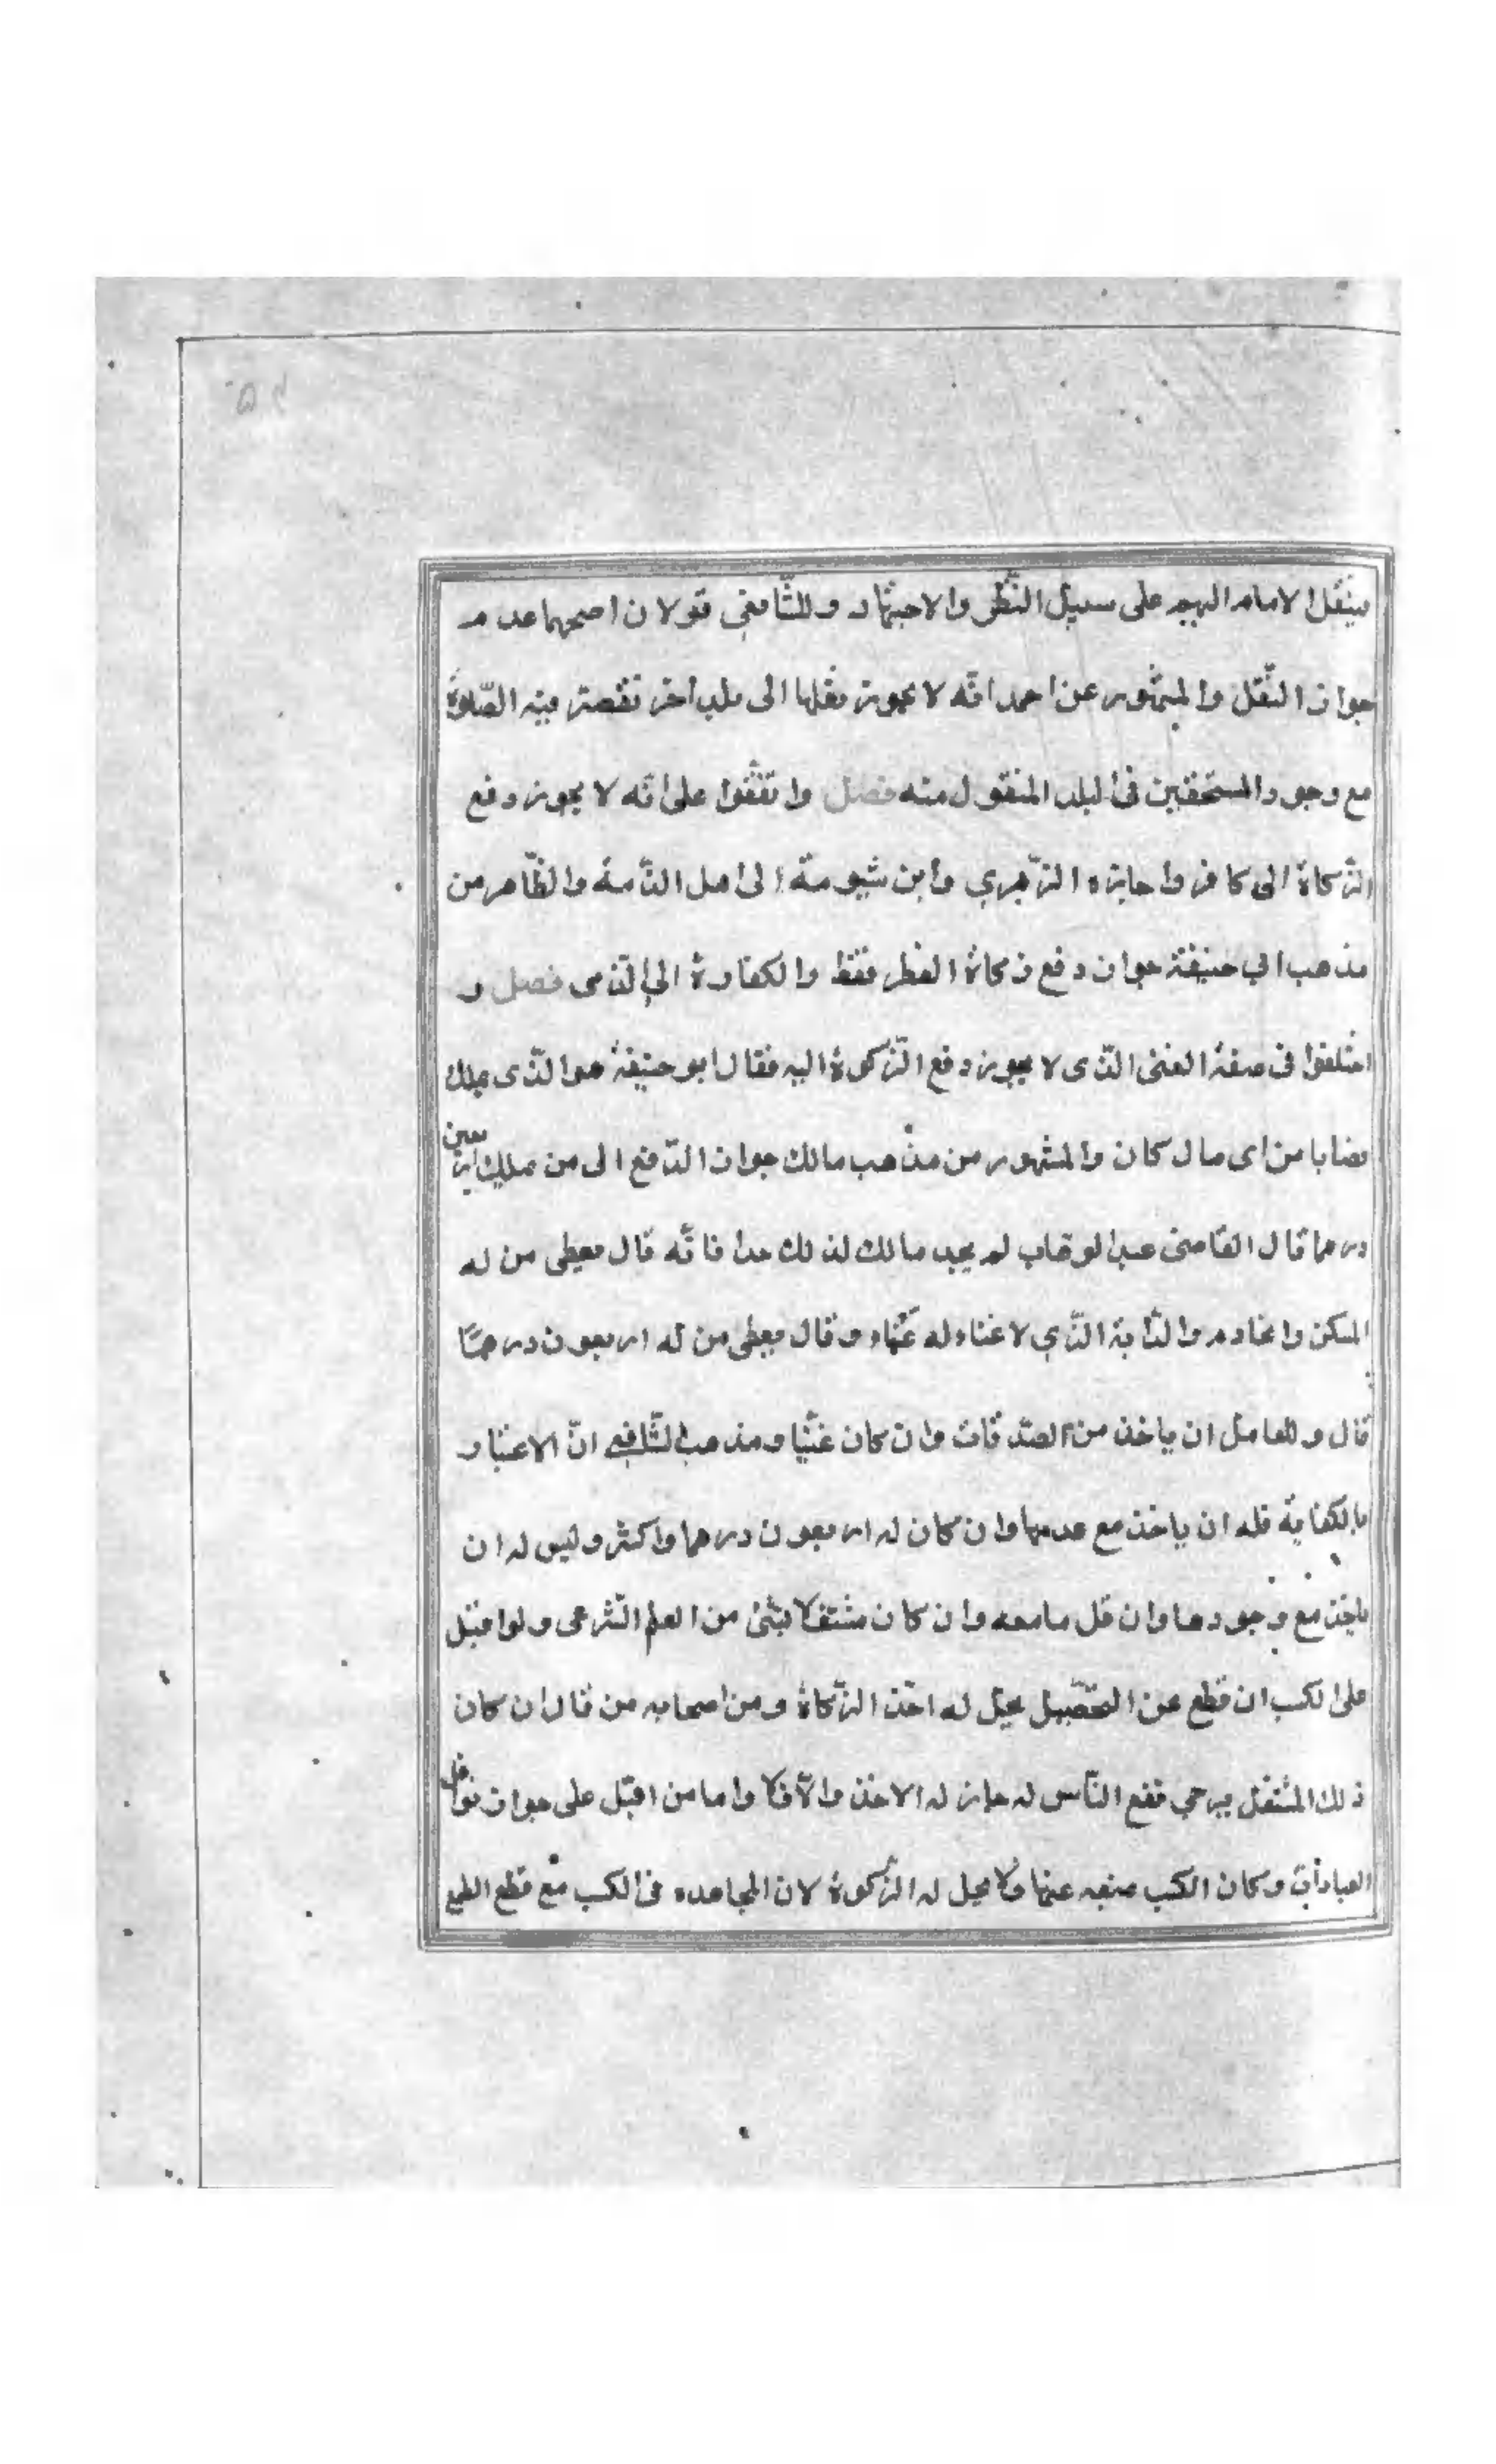 فينقل الامام اليهم على سبيل النّظر والاجتهاد وللشّافعي قولان اصحهما عدم
جواز النّقل والمشهور عن احمد انّه لا يجوز نقلها الى بلد اخر تقصر فيه الصّلوة
مع وجود المستحقين فى البلد المنقول منه فصل واتفقوا على انّه لا يجوز دفع
الزّكاة الى كافر واجازه الزّهري وابن شبرمة الى اهل الذّمة والظّاهر من
مذهب ابي حنيفة جواز دفع زكاة الفطر فقط والكفارة الى الذّمى فصل و
اختلفوا فى صفة الغنى الذّى لا يجوز دفع الزّكوة اليه فقال ابو حنيفة هو الذّى يملك
نصابا من اى مال كان والمشهور من مذهب مالك جواز الدّفع الى من يملك اربعين
درهما قال القاضى عبد الوهاب لم يحد مالك لذلك حدا فانّه قال يعطى من له
المسكن والخادم والدّابة الذّي لا غناء له عنها وقال يعطى من له اربعون درهمًا
قال وللعامل ان ياخذ من الصّدقات وان كان غنيّا ومذهب الشّافعي انّ الاعتبار
بالكفاية فله ان ياخذ مع عدمها وان كان له اربعون درهما واكثر وليس له ان
ياخذ مع وجودها وان قل ما معه وان كان مشتغلا بشئ من العلم الشّرعى ولو اقبل
على الكسب انقطع عن التحصيل يحل له اخذ الزّكاة ومن اصحابه من قال ان كان
ذلك المشتغل يرجي نفع النّاس له جاز له الاخذ والّا فلا واما من اقبل على جواز نوافل
العبادات وكان الكسب منعه عنها فلا يحل له الزّكوة لان المجاهده فى الكسب مع قطع الطمع